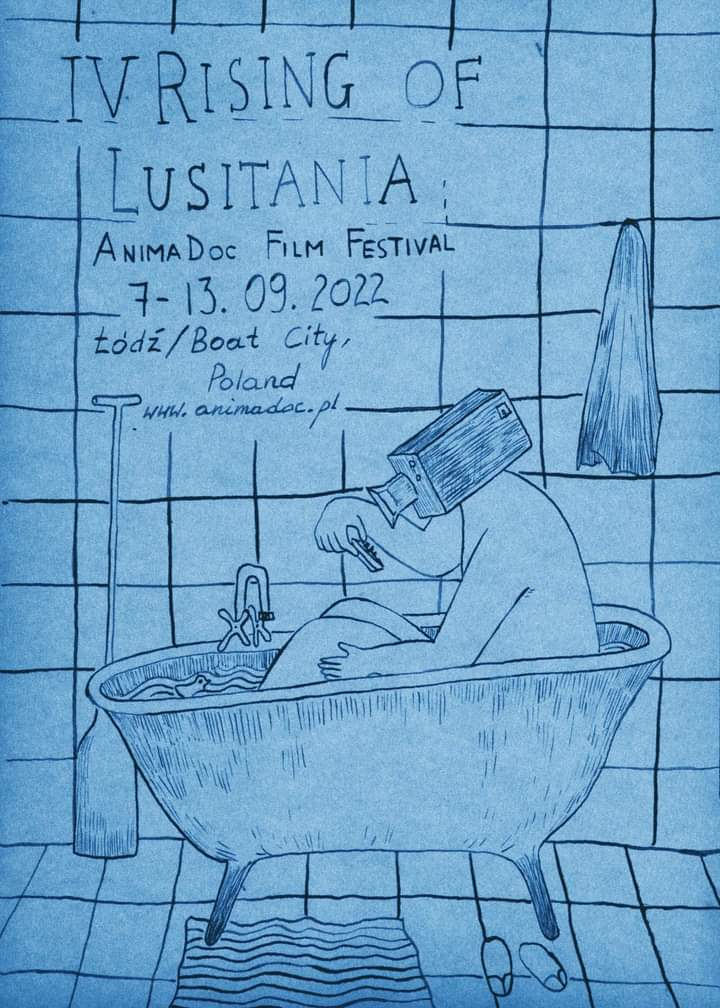 IV RISING OF
LUSITANIA
ANIMADOC FILM FESTIVAL
7-13. 09. 2022
Łódź/Boat City,
Poland
www.animadoc.pl